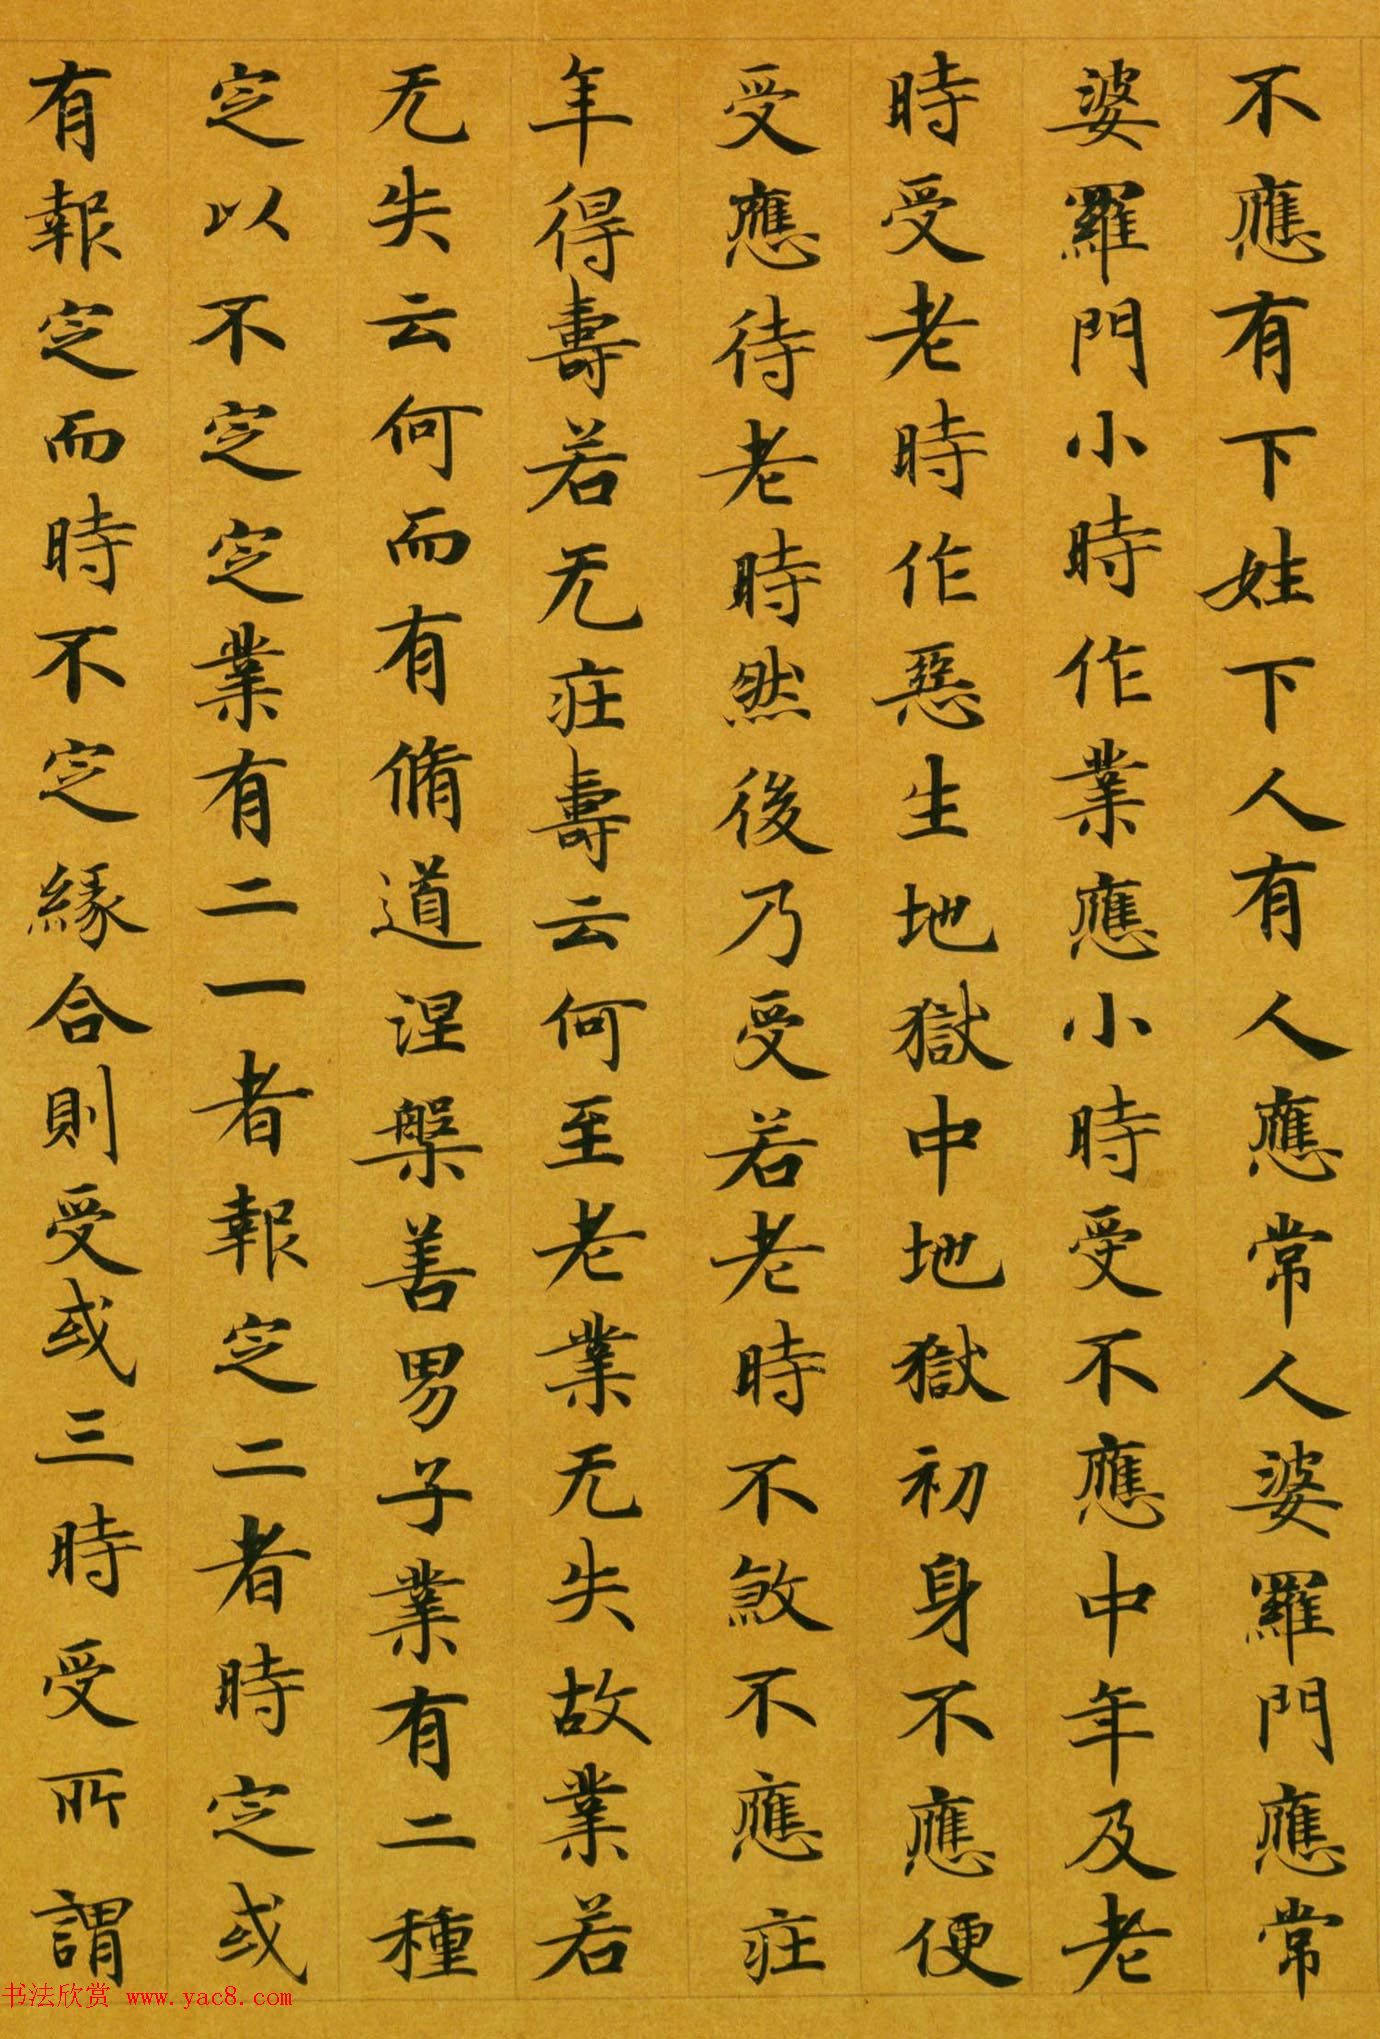 不應有下姓下人有人應常人婆羅門應常
婆羅門小時作業應小時受不應中年及老
時受老時作惡生地獄中地獄初身不應便
受應待老時然後乃受若老時不煞不應莊
年得壽若无莊壽云何至老業无失故業若
无失云何而有脩道涅槃善男子業有二種
定以不定定業有二一者報定二者時定或
有報定而時不定緣合則受或三時受所謂
书法欣赏 www.yac8.com